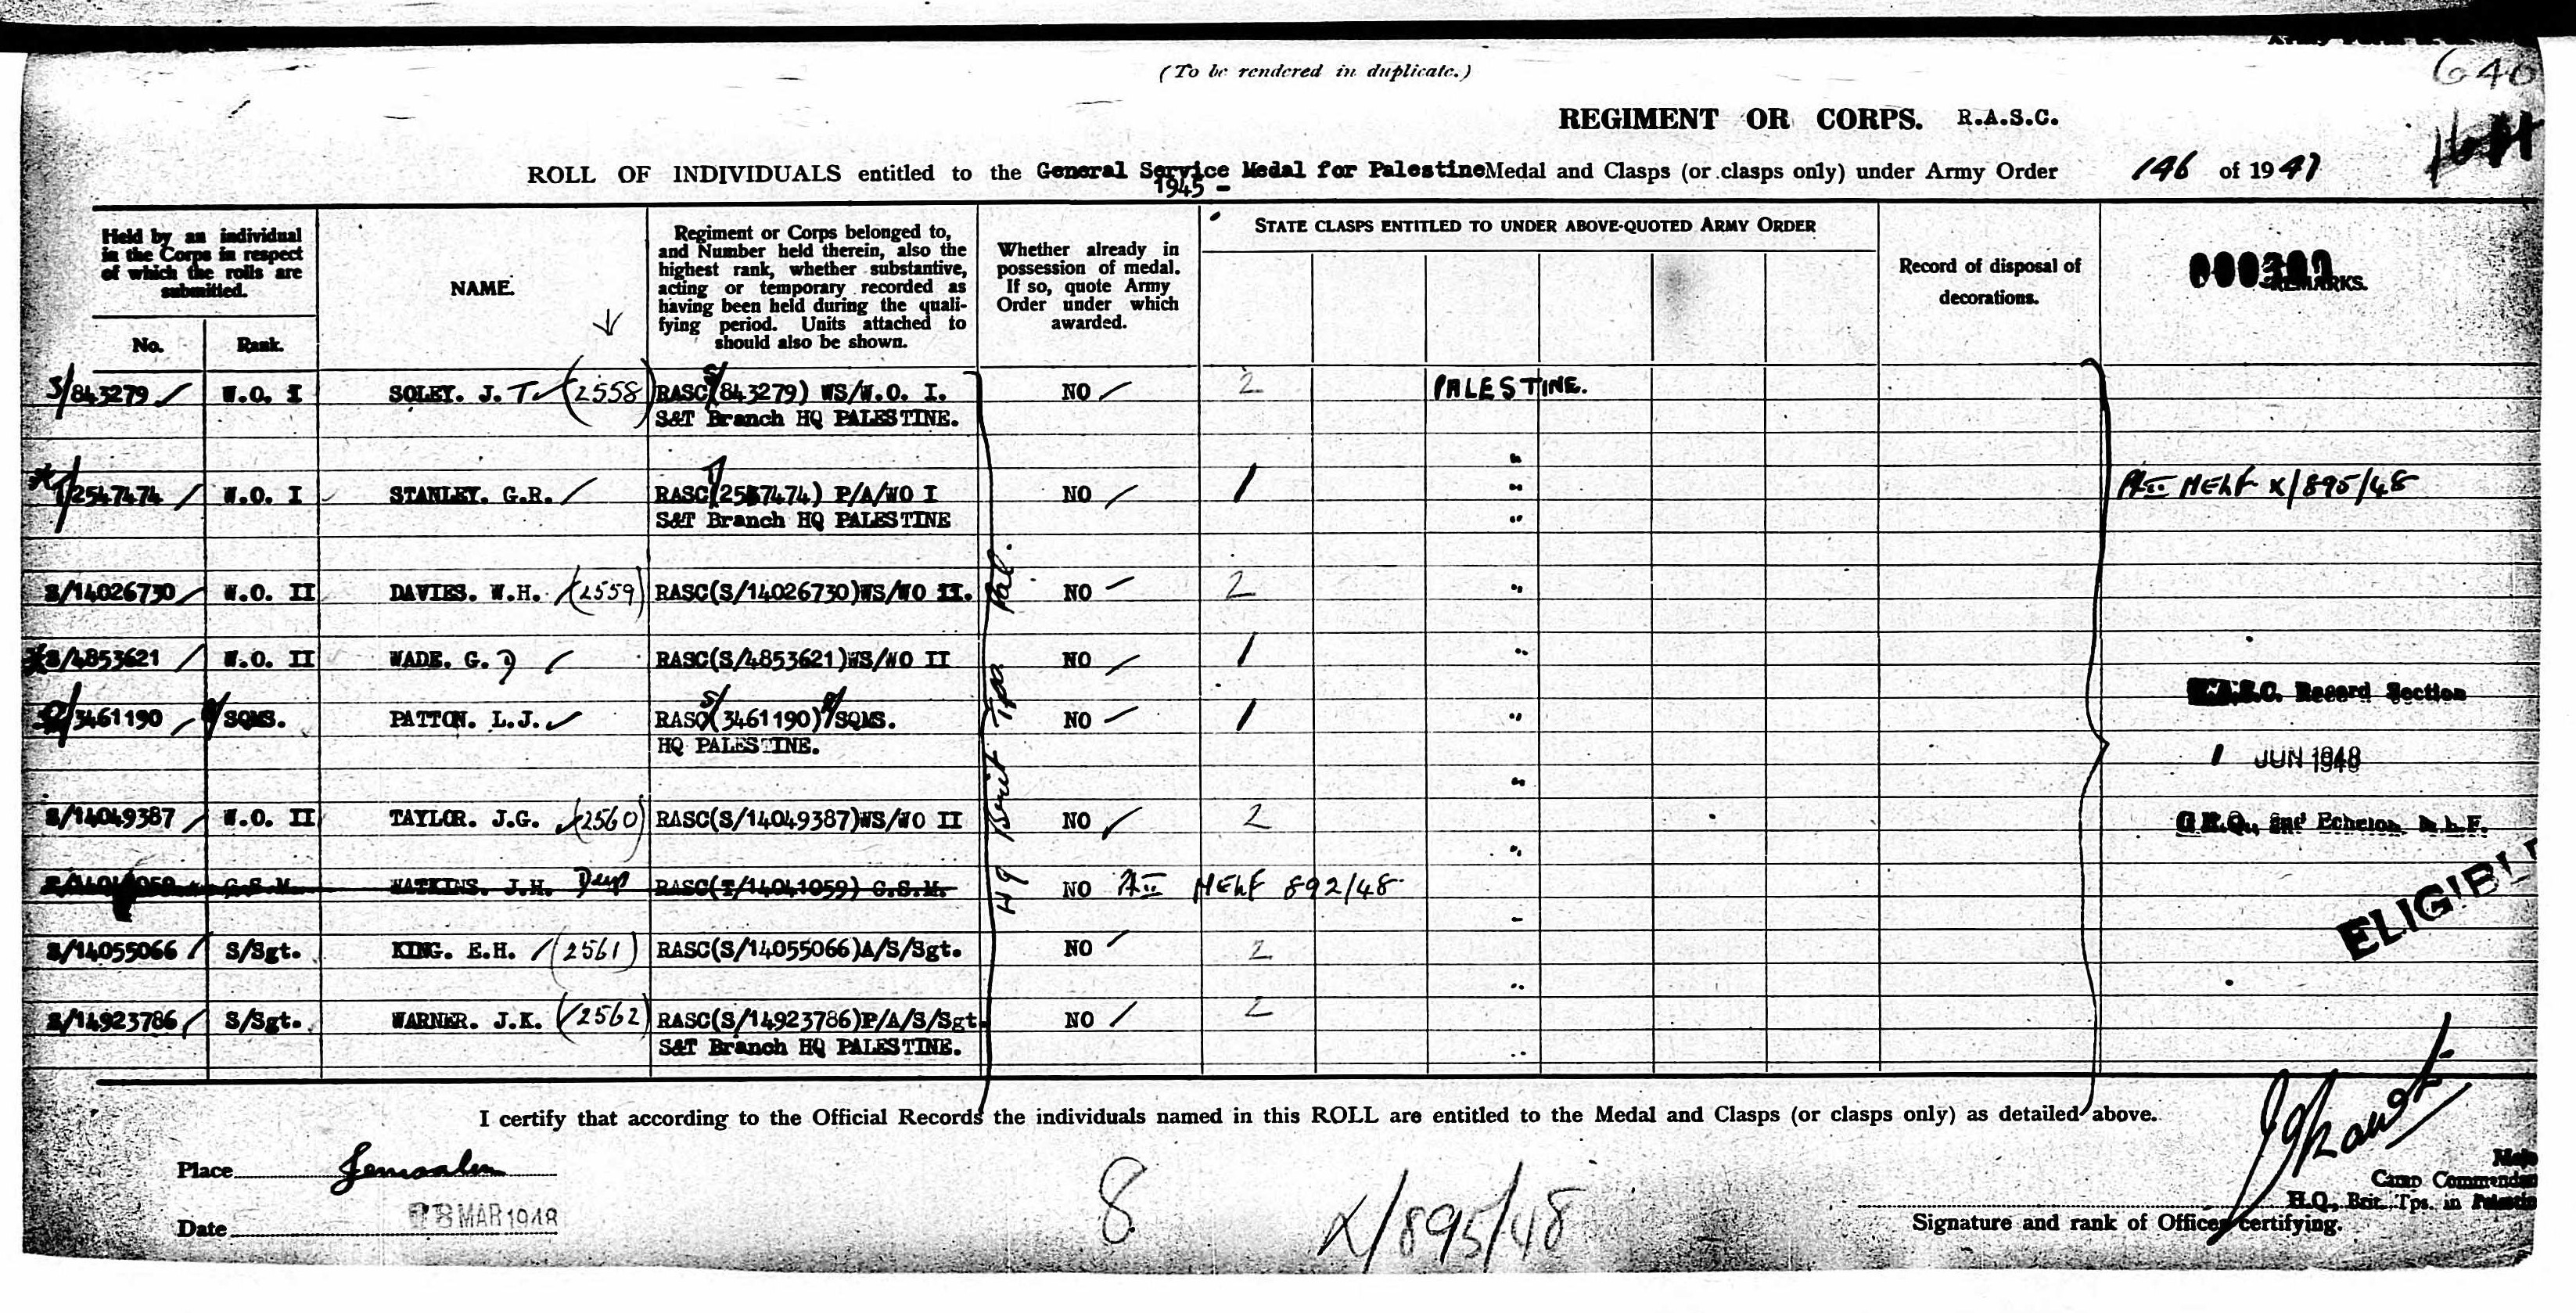 (To be rendered in duplicate.)
640
REGIMENT OR CORPS. R.A.S.C.
ROLL OF INDIVIDUALS entitled to the General Service Medal for Palestine Medal and Clasps (or clasps only) under Army Order 146 of 1947
1945 -
Held by an individual in the Corps in respect of which the rolls are submitted.
No.
Rank.
NAME.
Regiment or Corps belonged to, and Number held therein, also the highest rank, whether substantive, acting or temporary recorded as having been held during the qualifying period. Units attached to should also be shown.
Whether already in possession of medal. If so, quote Army Order under which awarded.
STATE CLASPS ENTITLED TO UNDER ABOVE-QUOTED ARMY ORDER
Record of disposal of decorations.
REMARKS.
S/843279 W.O. I SOLEY. J. T. (2558) RASC(S/843279) WS/W.O. I. NO 2 PALESTINE.
S&T Branch HQ PALESTINE.
"
T/2547474 W.O. I STANLEY. G.R. RASC(T/2547474) P/A/WO I NO 1 " MELF X/895/48
S&T Branch HQ PALESTINE "
S/14026730 W.O. II DAVIES. W.H. (2559) RASC(S/14026730)WS/WO II. NO 2 "
S/4853621 W.O. II WADE. G. RASC(S/4853621)WS/WO II NO 1 "
R.A.S.C. Record Section
S/3461190 SQMS. PATTON. L.J. RASC(S/3461190) SQMS. NO 1 "
HQ PALESTINE.
1 JUN 1948
"
S/14049387 W.O. II TAYLOR. J.G. (2560) RASC(S/14049387)WS/WO II NO 2
G.H.Q., 2nd Echelon, M.E.L.F.
"
C.S.M. WATKINS. J.H. Dup RASC(T/14041059) C.S.M. NO MELF 892/48
ELIGIBL
-
S/14055066 S/Sgt. KING. E.H. (2561) RASC(S/14055066)A/S/Sgt. NO 2
"
S/14923786 S/Sgt. WARNER. J.K. (2562) RASC(S/14923786)P/A/S/Sgt. NO 2
S&T Branch HQ PALESTINE. "
HQ Brit Tps Pal.
I certify that according to the Official Records the individuals named in this ROLL are entitled to the Medal and Clasps (or clasps only) as detailed above.
Place Jerusalem
Date 8 MAR 1948
8
X/895/48
Camp Commandan
H.Q., Brit. Tps. in Palestin
Signature and rank of Officer certifying.